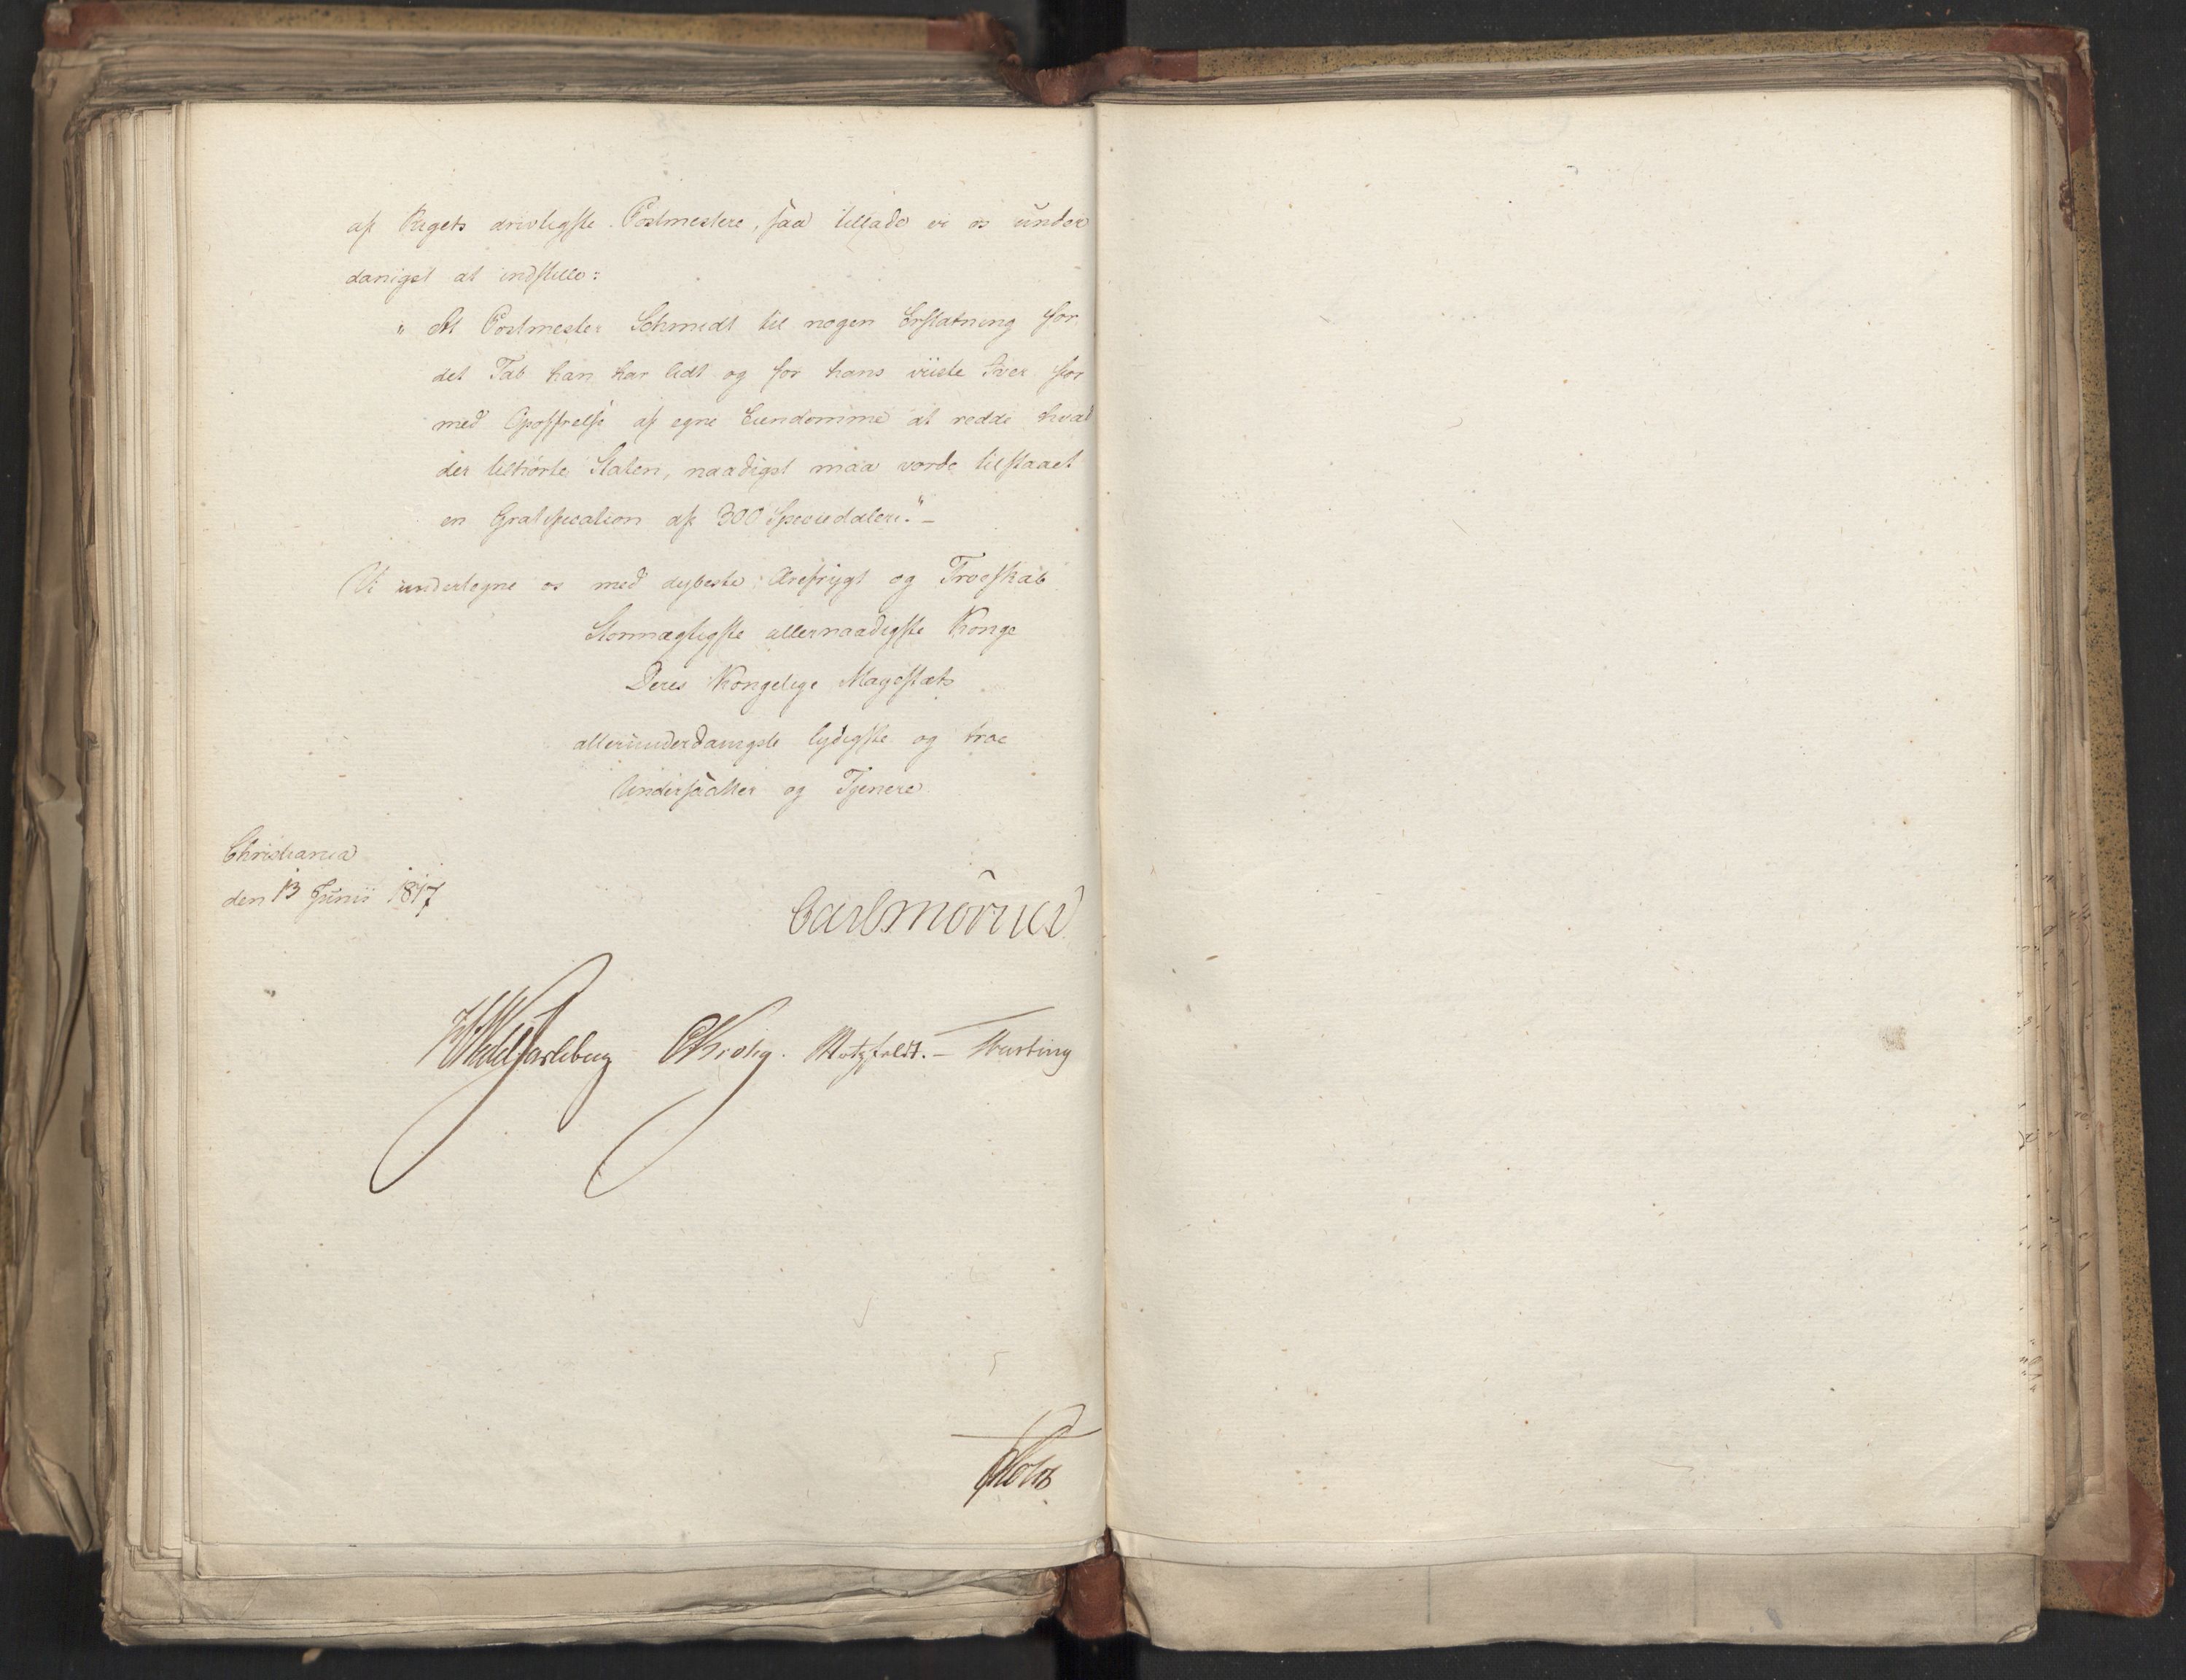 af Rigets drivtigste Postmestere, saa tillade vi os under
danigst at indstille:
" At Postmester Schmidt til nogen Erstatning for
det Tab han har lidt og for hans viiste Iver for
med Opoffrelse af egne Eiendomme at redde hvad
der tilhørte Staten, naadigst maa vorde tilstaaet
en Gratification af 300 Speciedaler." –
Vi undertegne os med dybeste Ærefrygt og Troeskab
Stormægtigste allernaadigste Konge
Deres Kongelige Majestæts
allerunderdanigste lydigste og troe
Undersaatter og Tjenere
Christiania
den 13 Junii 1817
Carl Mörner
HWedelJarlsberg Krohg. Motzfeldt. – 
Holst